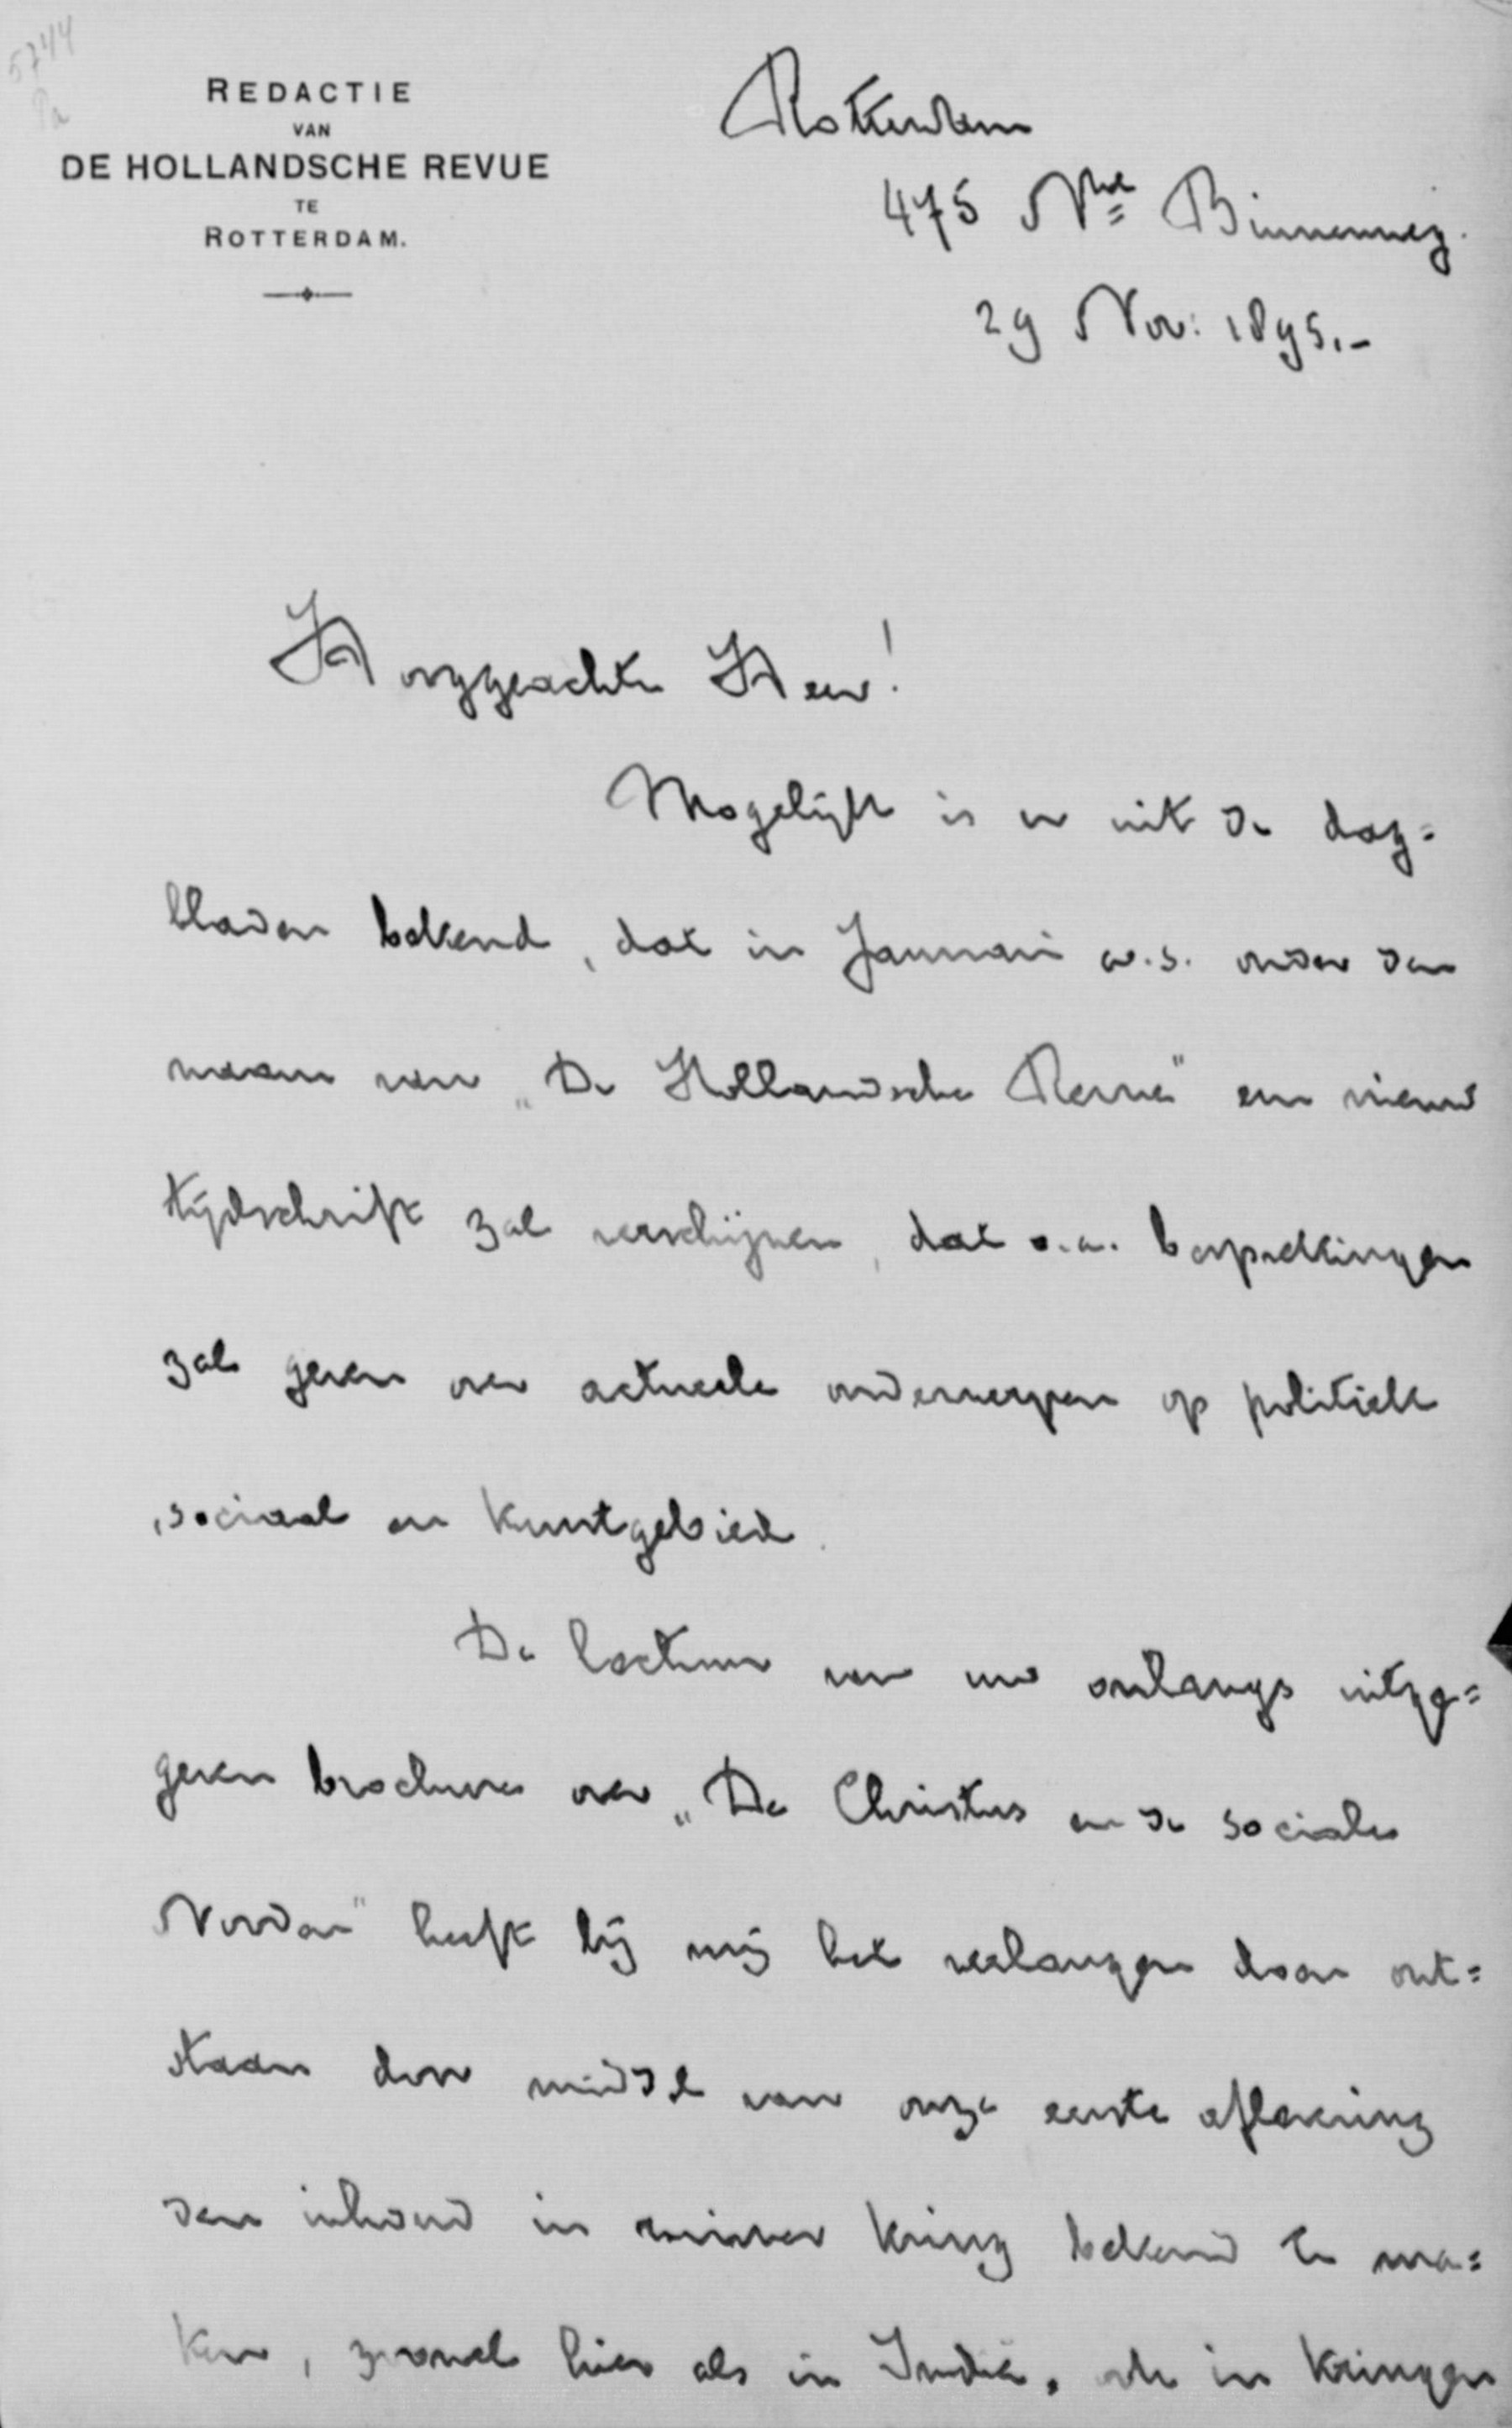 5744
Pa
REDACTIE
VAN
DE HOLLANDSCHE REVUE
TE
ROTTERDAM.
Rotterdam
475 Nwe Binnenweg.
29 Nov: 1895.-
Hooggeachte Heer!
Mogelijk is u uit de dag=
bladen bekend, dat in Januari a.s. onder den
naam van „De Hollandsche Revue" een nieuw
tijdschrift zal verschijnen, dat o.a. besprekingen
zal geven over actueele onderwerpen op politiek
, sociaal en kunstgebied.
De lectuur van uw onlangs uitge=
geven brochure over „De Christus en de sociale
Nooden" heeft bij mij het verlangen doen ont=
staan door middel van onze eerste aflevering
den inhoud in ruimer kring bekend te ma=
ken, zoowel hier als in Indië, ook in kringen